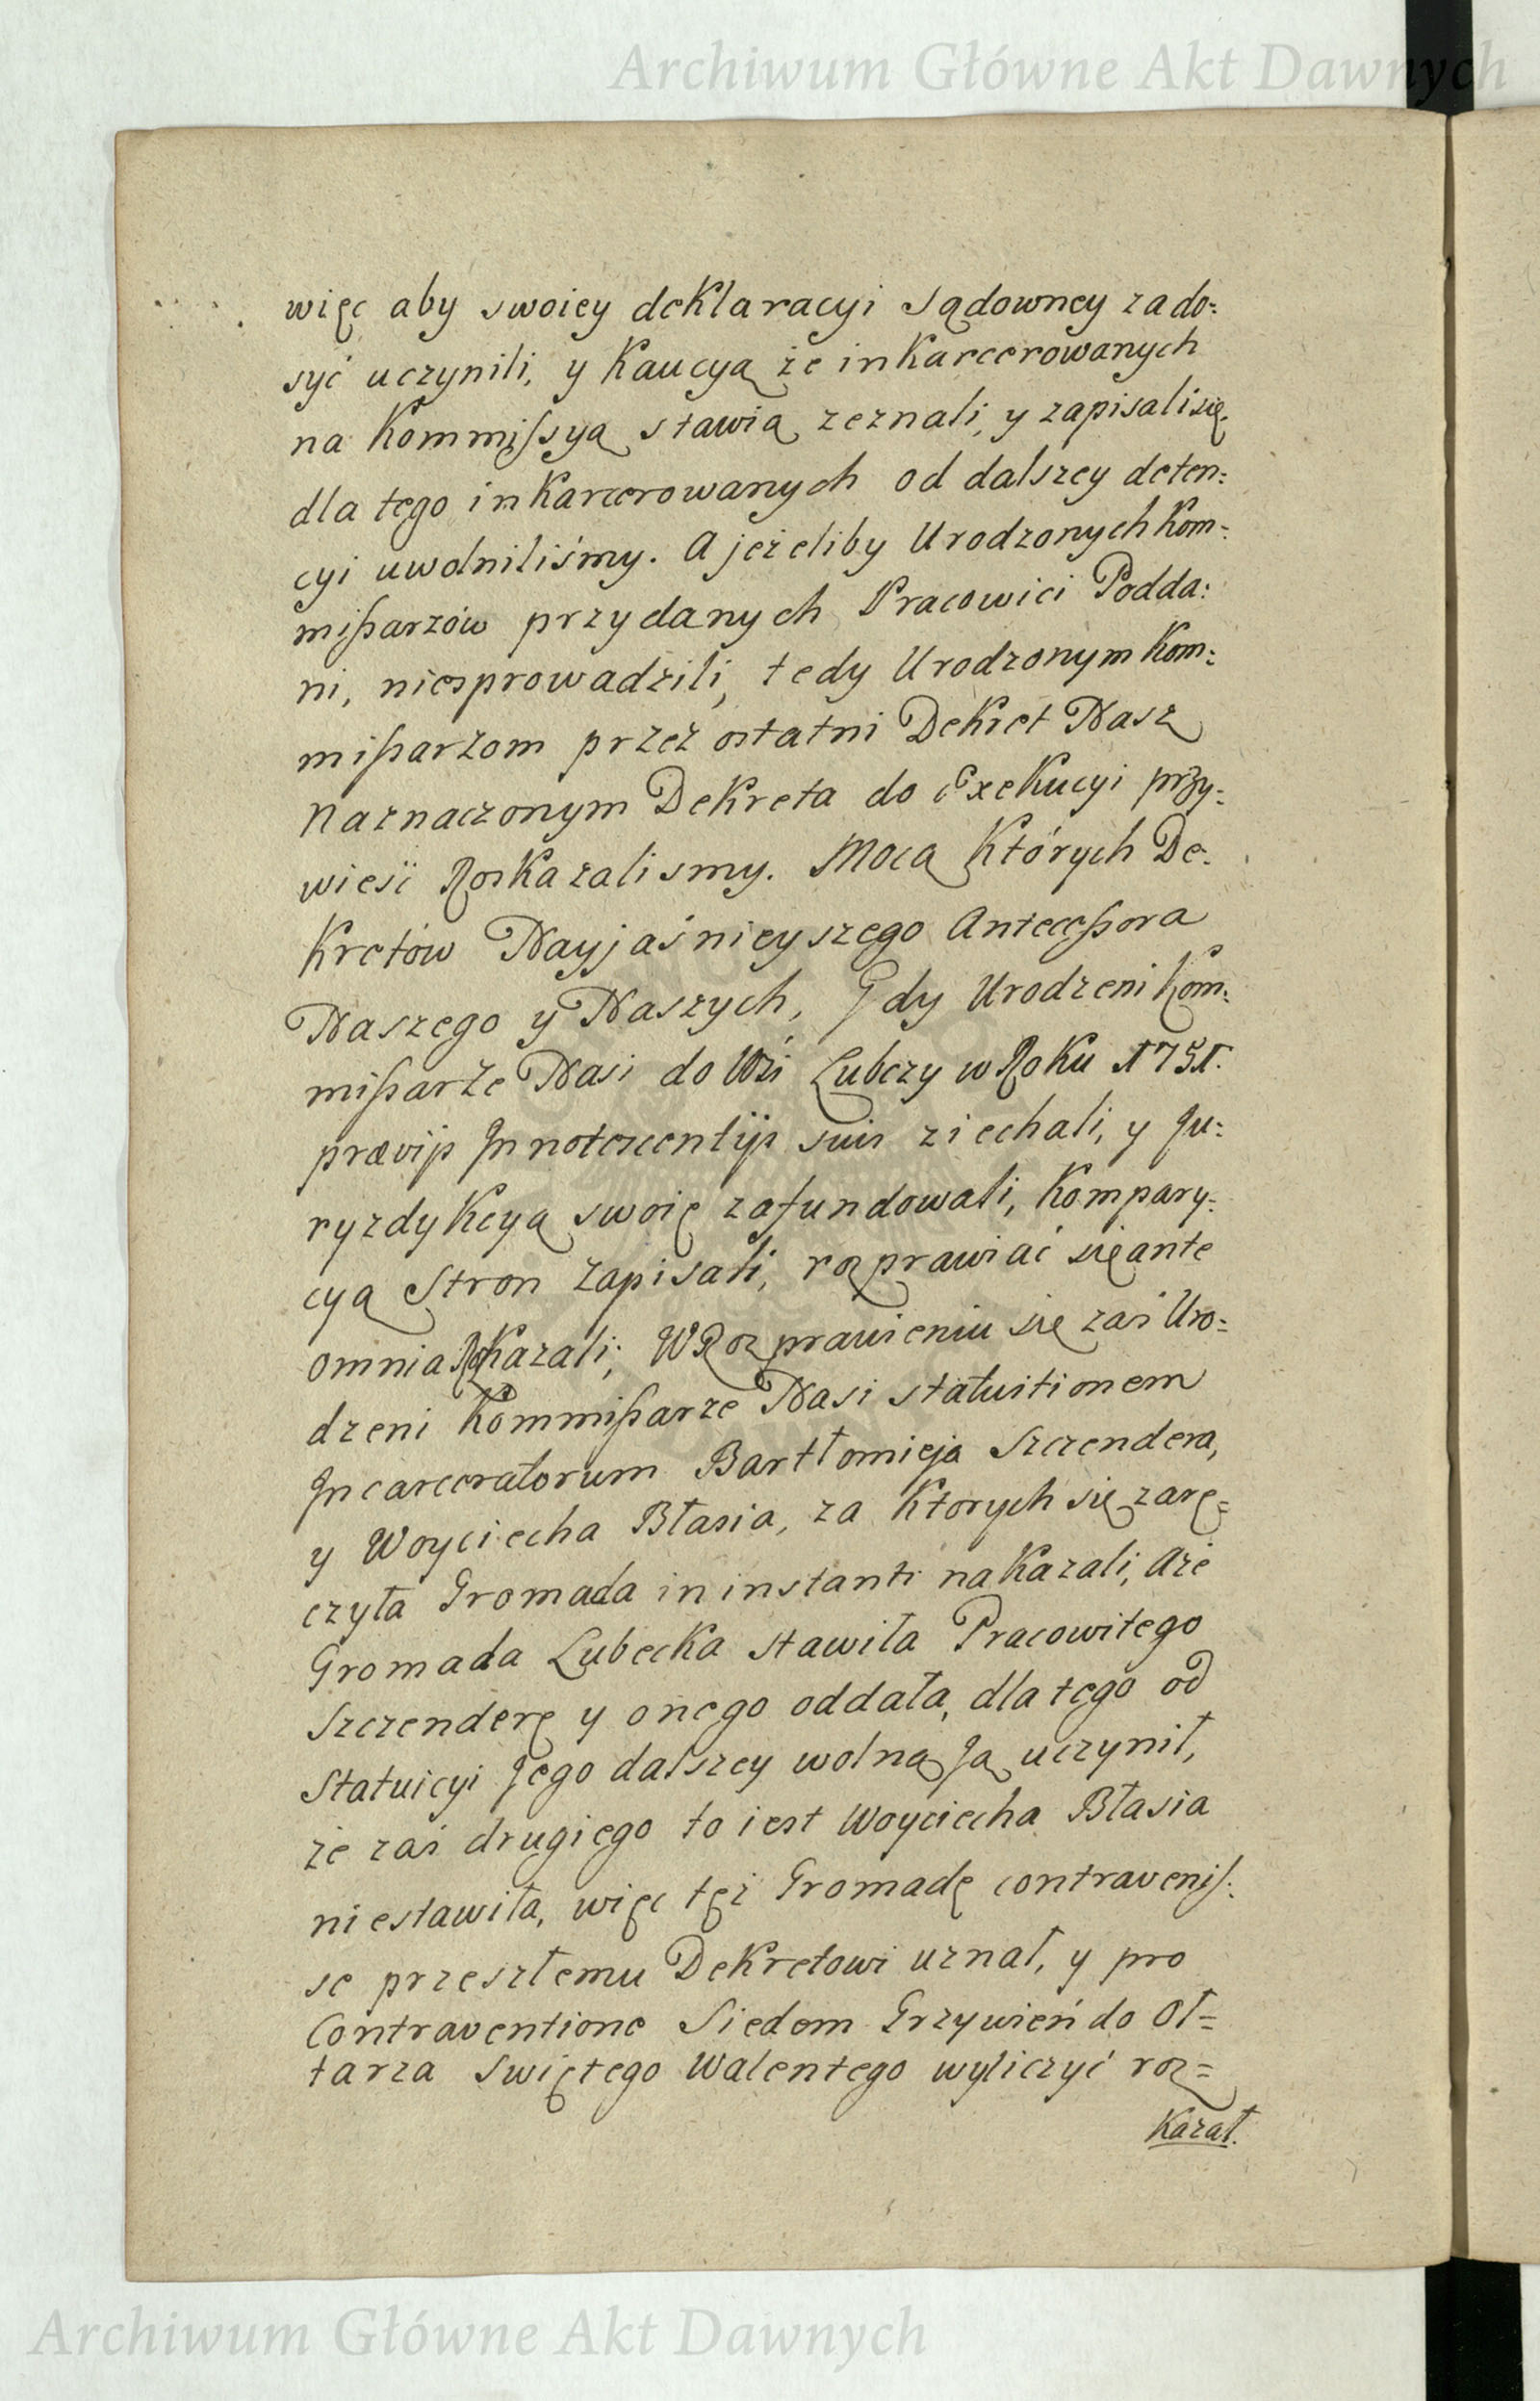 Archiwum Główne Akt Dawnych
więc aby swoiey deklaracyi sądowney zado:
syć uczynili, y Kaucyą że inkarcerowanych
na Kommissyą stawią zeznali, y zapisali się
dla tego inkarcerowanych od dalszey deten:
cyi uwolniliśmy. A jeżeliby Urodzonych Kom:
mißarzów przydanych Pracowici Podda:
ni, niesprowadzili, tedy Urodzonym Kom:
mißarzom przez ostatni Dekret Nasz
Naznaczonym Dekreta do Exekucyi przy:
wieść Roskazalismy. Mocą Których De:
Kretów Nayjaśnieyszego Antecessora
Naszego y Naszych, Gdy Urodzeni Kom:
mißarze Nasi do Wsi Lubczy w Roku 1751.
prævijs Innotescentijs suis ziechali, y Ju:
ryzdykcyą swoię zafundowali, Kompary:
cyą Stron zapisali, rozprawiać się ante
omnia Rozkazali; W Rozprawieniu się zaś Uro=
dzeni Kommißarze Nasi statuitionem
Incarceratorum Bartłomieja Szczendera,
y Woyciecha Błasia, za Ktorych się zarę=
czyła Gromada in instanti nakazali, Aże
Gromada Lubecka stawiła Pracowitego
Szczenderę y onego oddała, dla tego od
Statuicyi Jego dalszey wolną Ją uczynił,
że zaś drugiego to iest Woyciecha Błasia
niestawiła, więc tęż Gromadę contravenis:
se przeszłemu Dekretowi uznał, y pro
Contraventione Siedem Grzywień do Oł=
tarza Swiętego Walentego wyliczyć roz=
Kazał.
Archiwum Główne Akt Dawnych